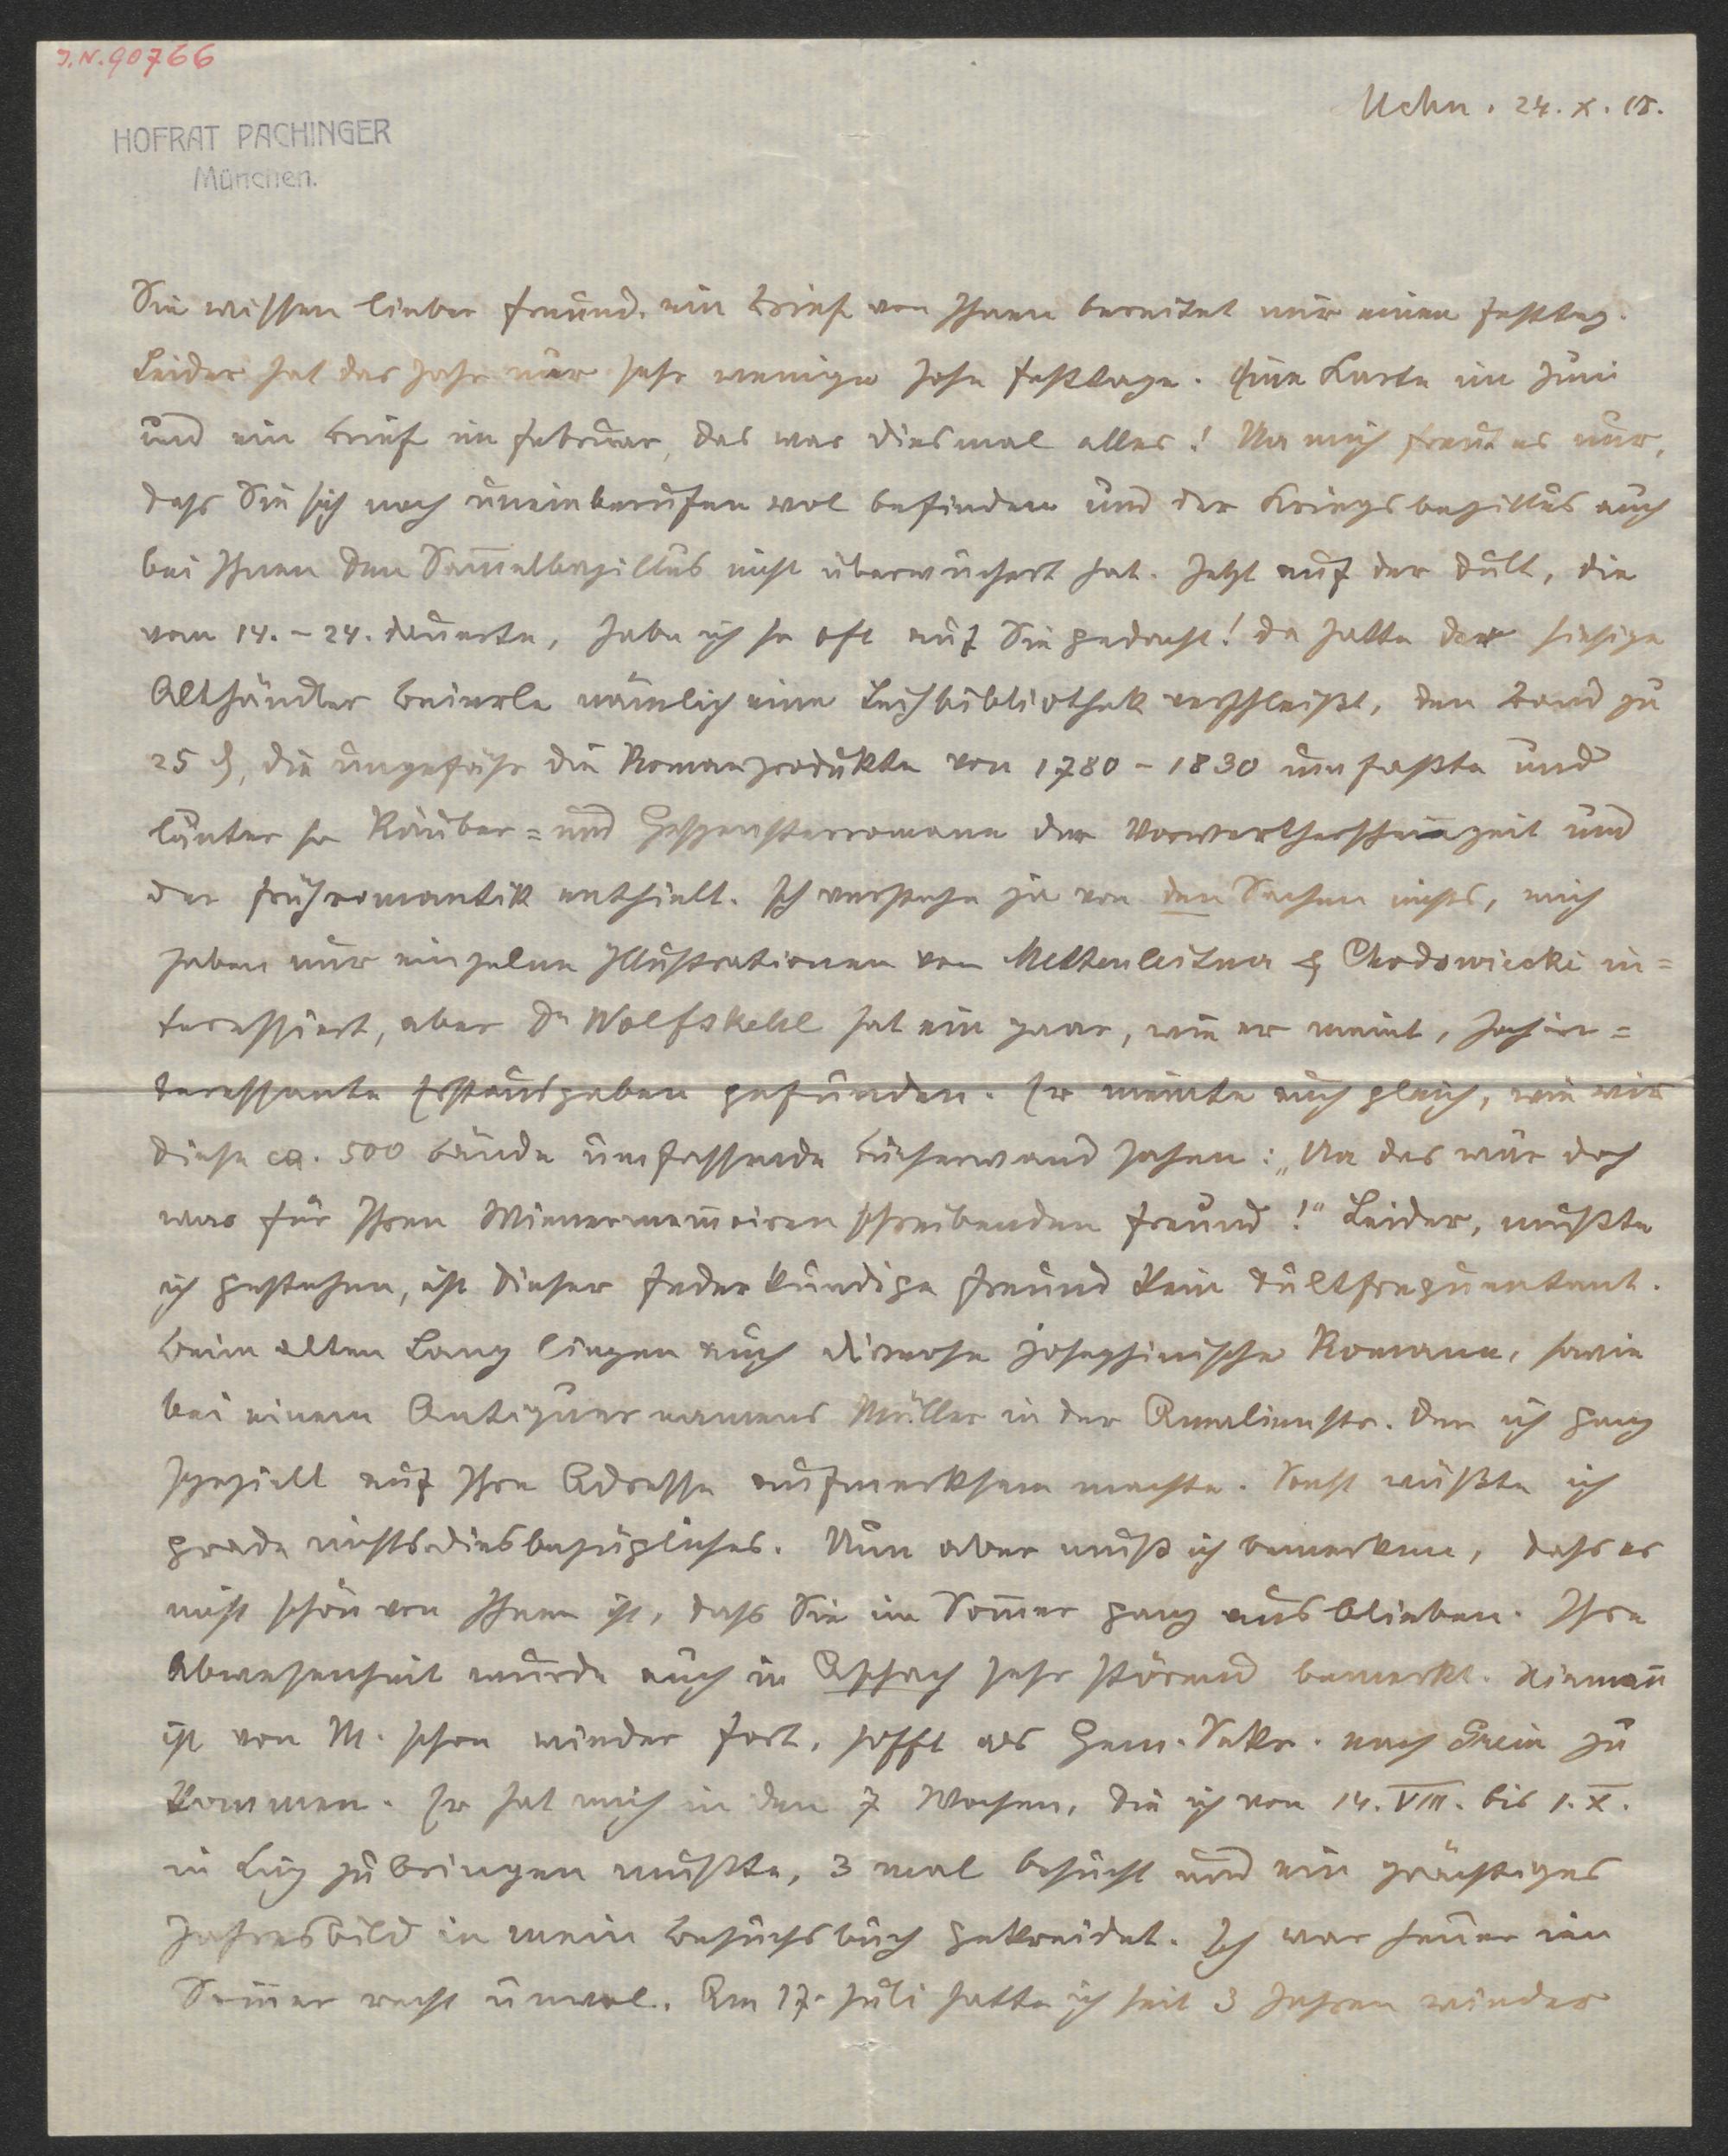 J.N. 90766
HOFRAT PACHINGER
München.
Mchn. 24. X. 15.
Sie wissen lieber Freund, ein Brief von Ihnen bereitet mir einen Festtag.
Leider hat das Jahr nur sehr wenige hohe Festtage. Eine Karte im Juni
und ein Brief im Februar, das war diesmal alles! Na mich freut es nur,
dass Sie sich noch uneinberufen wol befinden und der Kriegsbazillus auch
bei Ihnen den Sam̅elbazillus nicht überwuchert hat. Jetzt auf der Dult, die
vom 14.–24. dauerte, habe ich so oft auf Sie gedacht! Da hatte der hiesige
Althändler Beierle nämlich eine Leihbibliothek verschleißt, den Band zu
25 ₰, die ungefähr die Romanprodukte von 1780–1830 umfaßte und
lauter so Räuber= und Gespensterromane der Vorwertherschen Zeit und
der Frühromantik enthielt. Ich verstehe ja von den Sachen nichts, mich
haben nur einzelne Illustrationen von Mettenleitner & Chodowiecki in=
teressiert, aber Dr Wolfskehl hat ein paar, wie er meint, hochin=
teressante Erstausgaben gefunden. Er meinte auch gleich, wie wir
diese ca. 500 Bände umfassende Bücherwand sahen: „Na das wär doch
was für Ihren Wienermem̅oiren schreibenden Freund!" Leider, mußte
ich gestehen, ist dieser federkundige Freund kein Dultfrequentant.
Beim alten Lang liegen auch diverse josephinische Romane, sowie
bei einem Antiquar namens Müller in der Amalienstr. den ich ganz
speziell auf Ihre Adresse aufmerksam machte. Sonst wüßte ich
grade nichts diesbezügliches. Nun aber muß ich bemerken, dass es
nicht schön von Ihnen ist, dass Sie im Som̅er ganz ausblieben. Ihre
Abwesenheit wurde auch in Aschach sehr störend bemerkt. Niman̅
ist von M. schon wieder fort, hofft als Gem. Sekr. nach Grein zu
kommen. Er hat mich in den 7 Wochen, die ich von 14. VIII. bis 1. X.
in Linz zubringen mußte, 3 mal besucht und ein prächtiges
Jahresbild in mein Besuchsbuch gekreidet. Ich war heuer im
Som̅er recht unwol. Am 17. Juli hatte ich seit 3 Jahren wieder